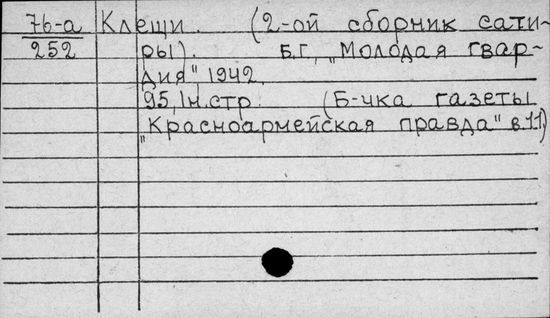 76-а Клещи. (2-ой сборник сати-
252 ры). Б.Г., „Молодая гвар-
дия", 1942.
95, 1 н.стр. (Б-чка газеты
„Красноармейская правда" в.11)